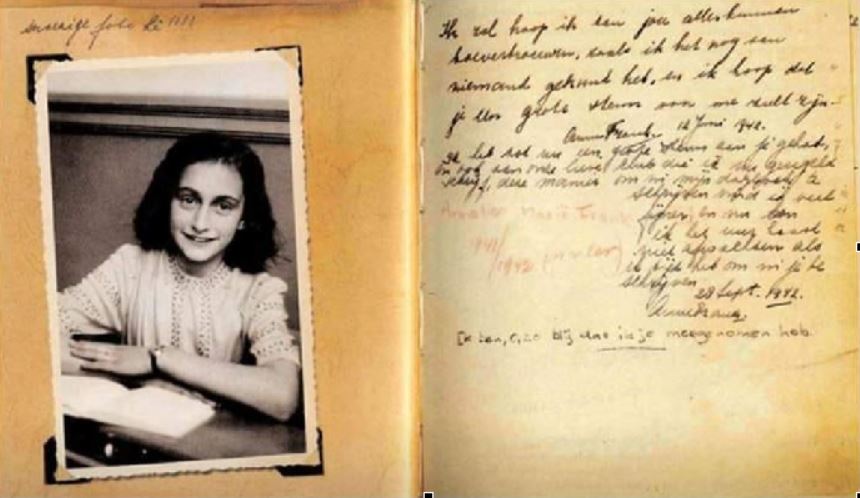 foto
Ik zal hoop ik aan jou alles kunnen
toevertrouwen, zoals ik het nog aan
niemand gekund heb, en ik hoop dat
je een grote steun voor me zult zijn.
Anne Frank. 12 Juni 1942.
Ik heb tot nu een grote steun aan je gehad,
en ook aan onze lieve club die ik nu geregeld
schrijf, deze manier om in mijn dagboek te
schrijven vind ik veel
fijner en nu kan
ik het uur haast
niet afwachten als
ik tijd heb om in je te
schrijven
28 Sept. 1942.
Anne Frank.
1942
Ik ben, o, zo blij dat ik je meegenomen heb.